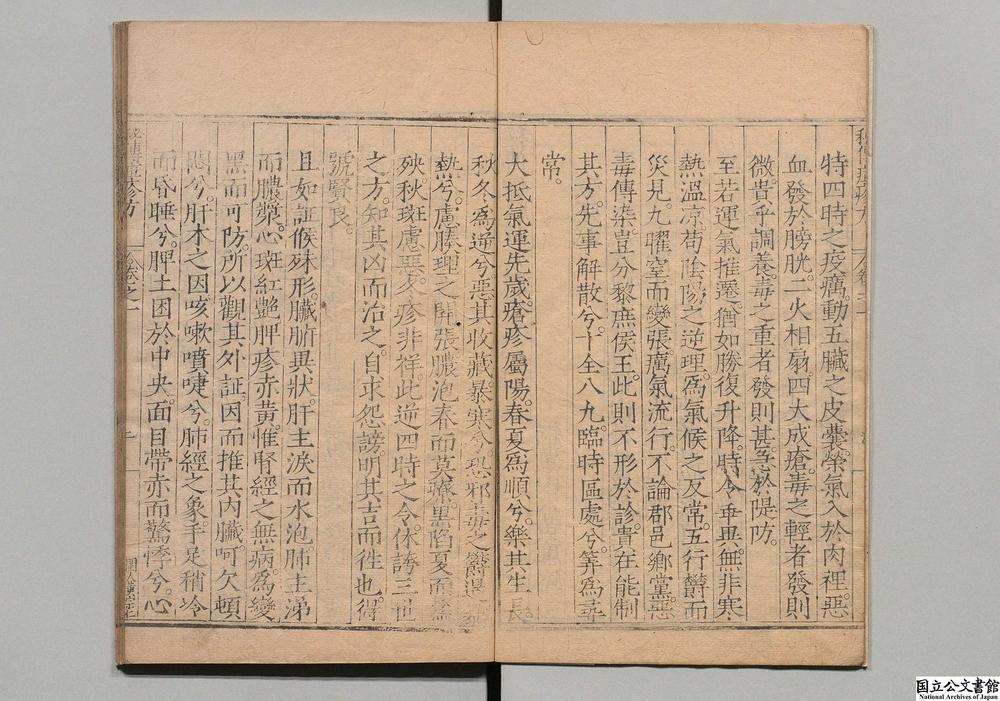 特四時之疫癘。動五臟之皮囊。榮氣入於肉裡。惡
血發於膀胱。二火相扇。四大成瘡。毒之輕者發則
微。貴乎調養。毒之重者發則甚。急於隄防。
至若運氣推遷。猶如勝復升降。時令乖異。無非寒
熱溫涼。苟陰陽之逆理。爲氣候之反常。五行欝而
災見。九曜窒而變張。厲氣流行。不論郡邑鄉黨。惡
毒傳染。豈分黎庶侯王。此則不形於診。實在能制
其方。先事解散兮。十全八九。臨時區處兮。筭爲尋
常。
大抵氣運先歲。瘡疹屬陽。春夏爲順兮。樂其生長
秋冬爲逆兮。惡其收藏。暴寒兮。恐邪毒之欝遏
熱兮。慮腠理之開張。膿泡春而莫療。黑陷夏而
殃。秋斑慮惡。冬疹非祥。此逆四時之令。休誇三世
之方。知其凶而治之。自求怨謗。明其吉而徃也。得
號賢良。
且如証候殊形。臟腑異狀。肝主淚而水泡。肺主涕
而膿漿。心斑紅艷。脾疹赤黃。惟腎經之無病。爲變
黑而可防。所以觀其外証。因而推其內臟。呵欠頓
悶兮。肝木之因。咳嗽噴嚏兮。肺經之象。手足稍冷
而昏睡兮。脾土困於中央。面目帶赤而驚悸兮。心
國立公文書館
National Archives of Japan